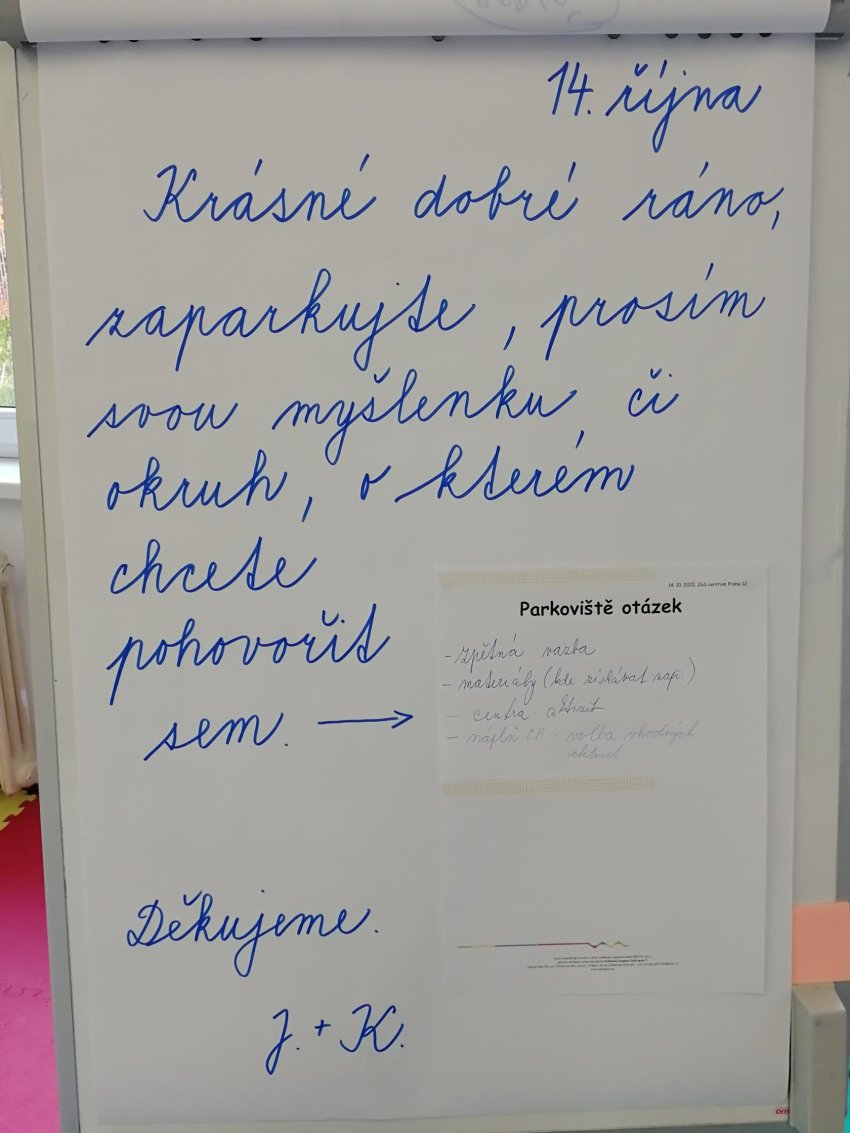 14. října
Krásné dobré ráno,
zaparkujte, prosím
svou myšlenku či
okruh, o kterém
chcete
pohovořit
sem. →
14. 10. 2022, ZaS centrum Praha 12
Parkoviště otázek
- zpětná vazba
- materiály (kde získávat např.)
- centra aktivit
- náplň CA - volba vhodných
aktivit
Děkujeme.
J. + K.